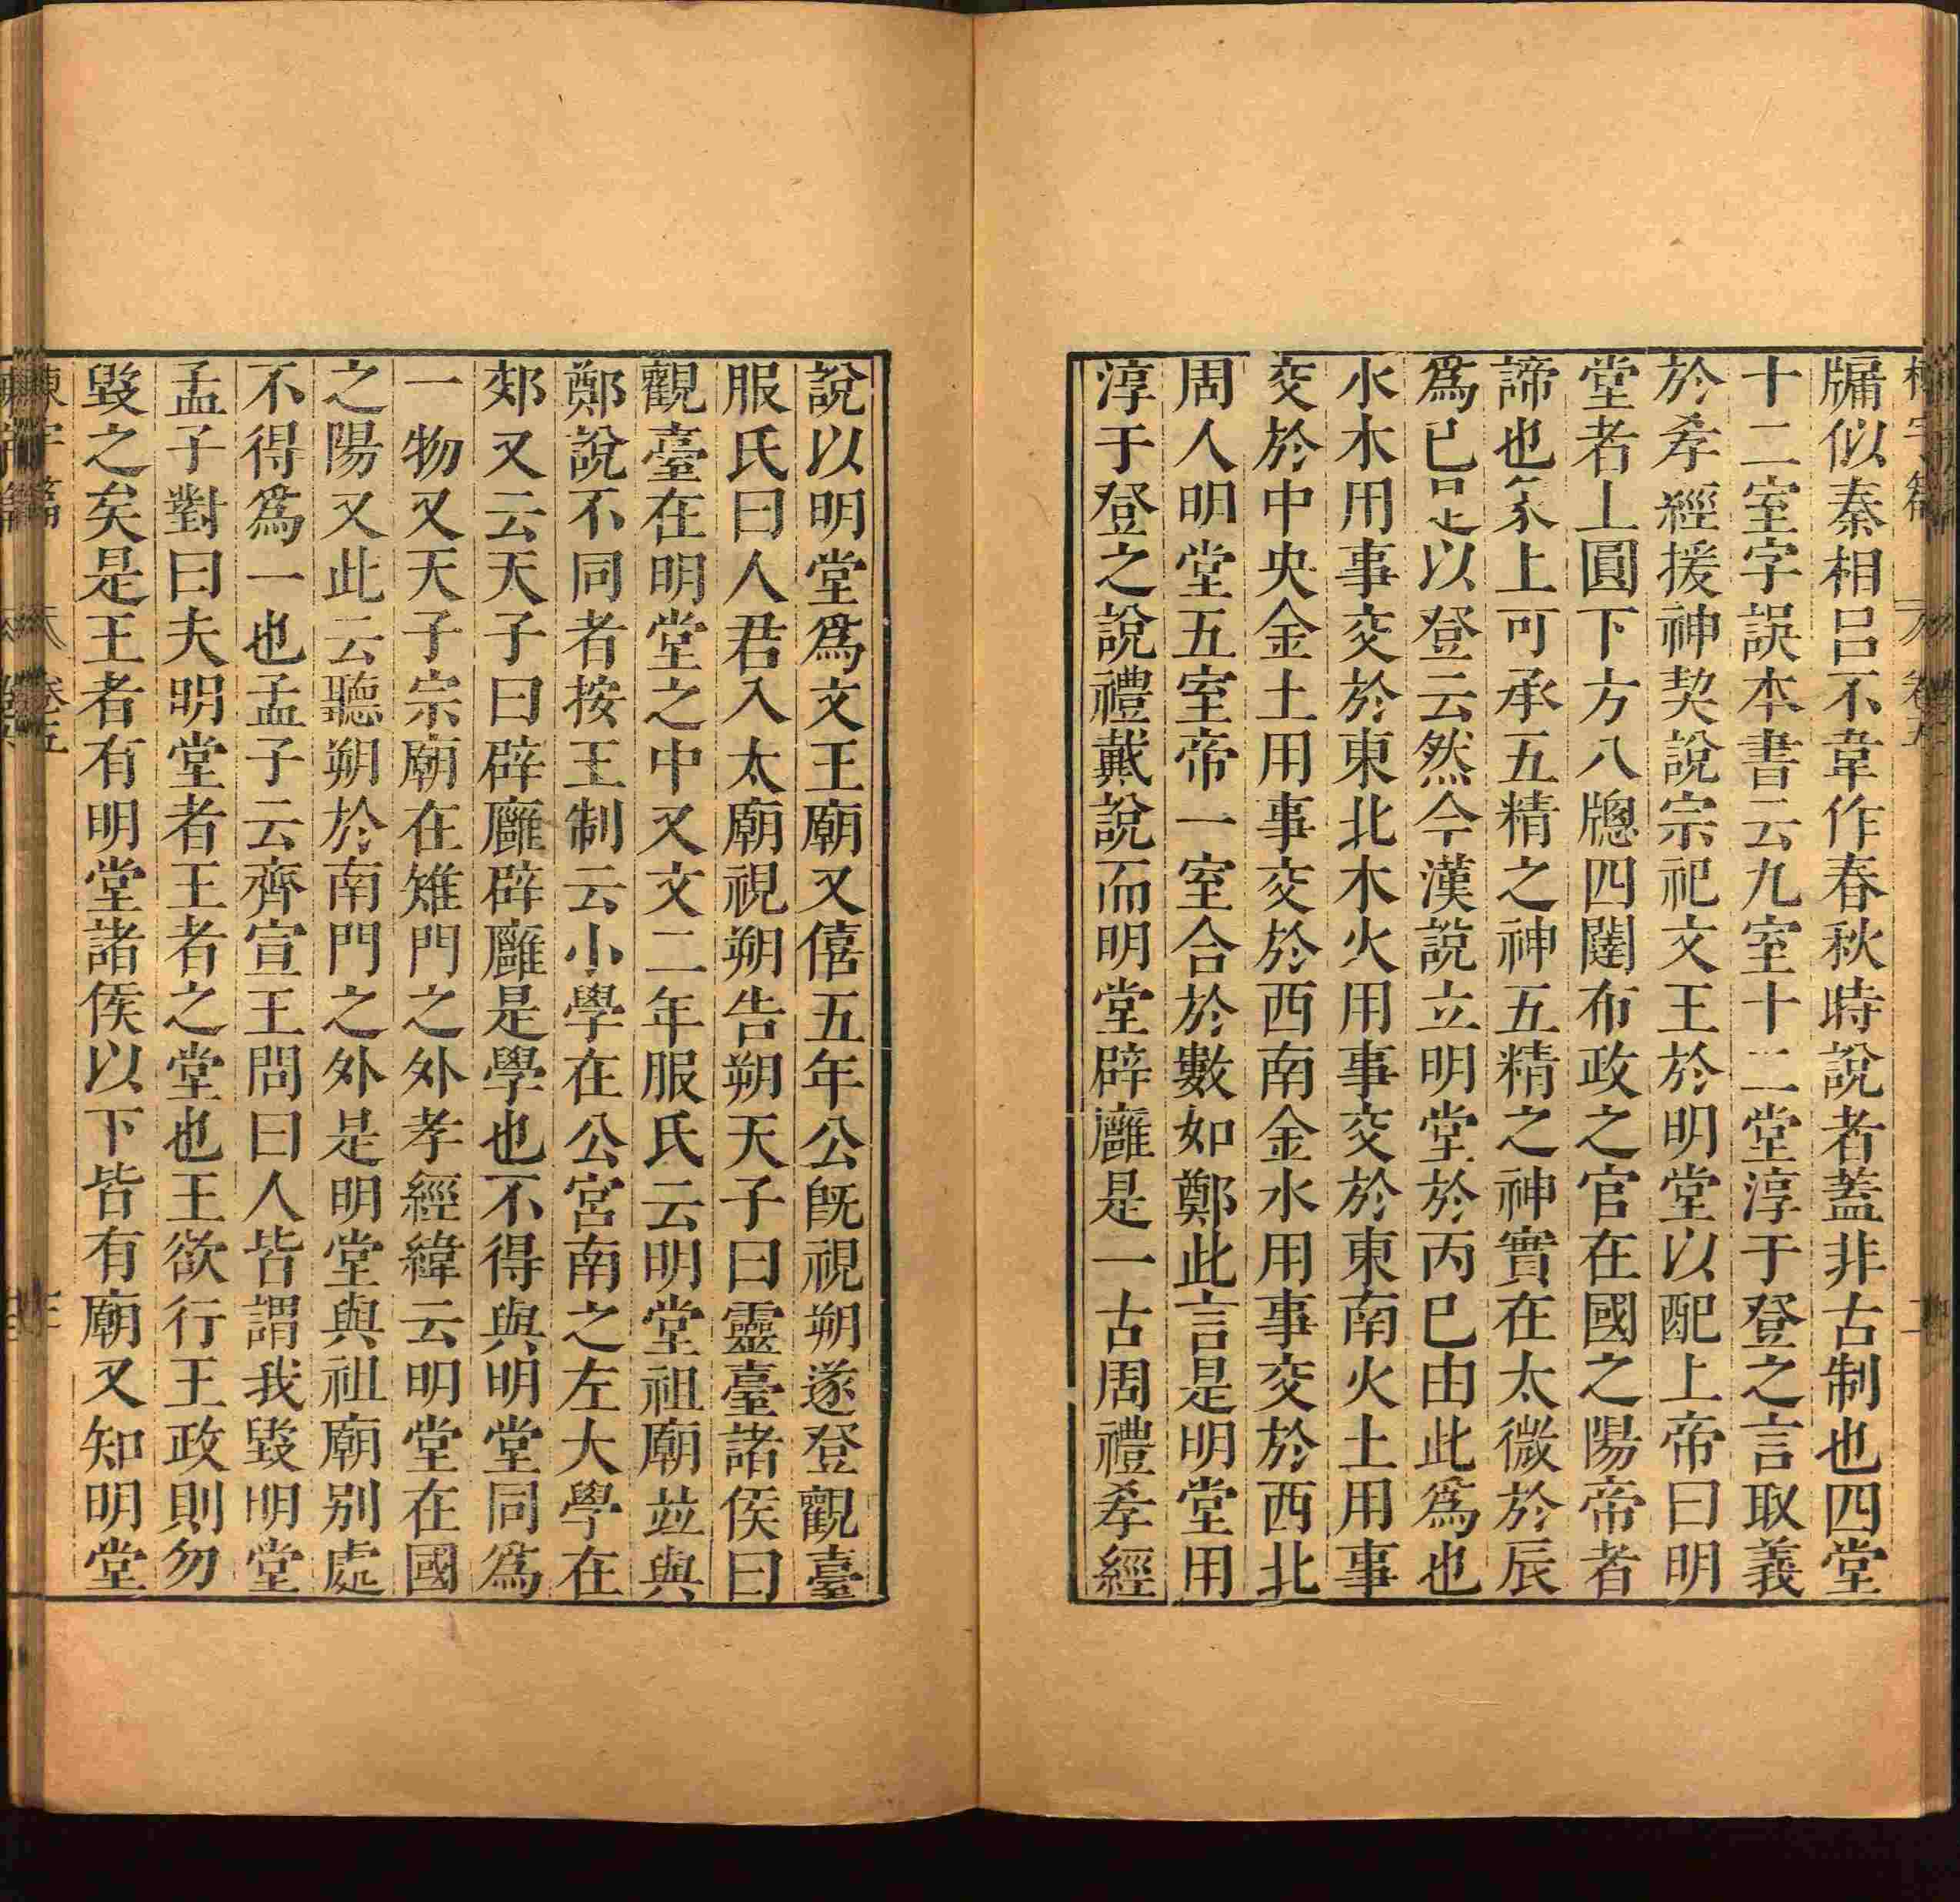 牖似秦相呂不韋作春秋時說者蓋非古制也四堂
十二室字誤本書云九室十二堂淳于登之言取義
於孝經援神契說宗祀文王於明堂以配上帝曰明
堂者上圓下方八牕四闥布政之官在國之陽帝者
諦也象上可承五精之神五精之神實在太微於辰
為巳是以登云然今漢說立明堂於丙巳由此為也
水木用事交於東北木火用事交於東南火土用事
交於中央金土用事交於西南金水用事交於西北
周人明堂五室帝一室合於數如鄭此言是明堂用
淳于登之說禮戴說而明堂辟廱是一古周禮孝經
說以明堂為文王廟又僖五年公旣視朔遂登觀臺
服氏曰人君入太廟視朔告朔天子曰靈臺諸侯曰
觀臺在明堂之中又文二年服氏云明堂祖廟並與
鄭說不同者按王制云小學在公宮南之左大學在
郊又云天子曰辟廱辟廱是學也不得與明堂同為
一物又天子宗廟在雉門之外孝經緯云明堂在國
之陽又此云聽朔於南門之外是明堂與祖廟別處
不得為一也孟子云齊宣王問曰人皆謂我毀明堂
孟子對曰夫明堂者王者之堂也王欲行王政則勿
毀之矣是王者有明堂諸侯以下皆有廟又知明堂
卷五